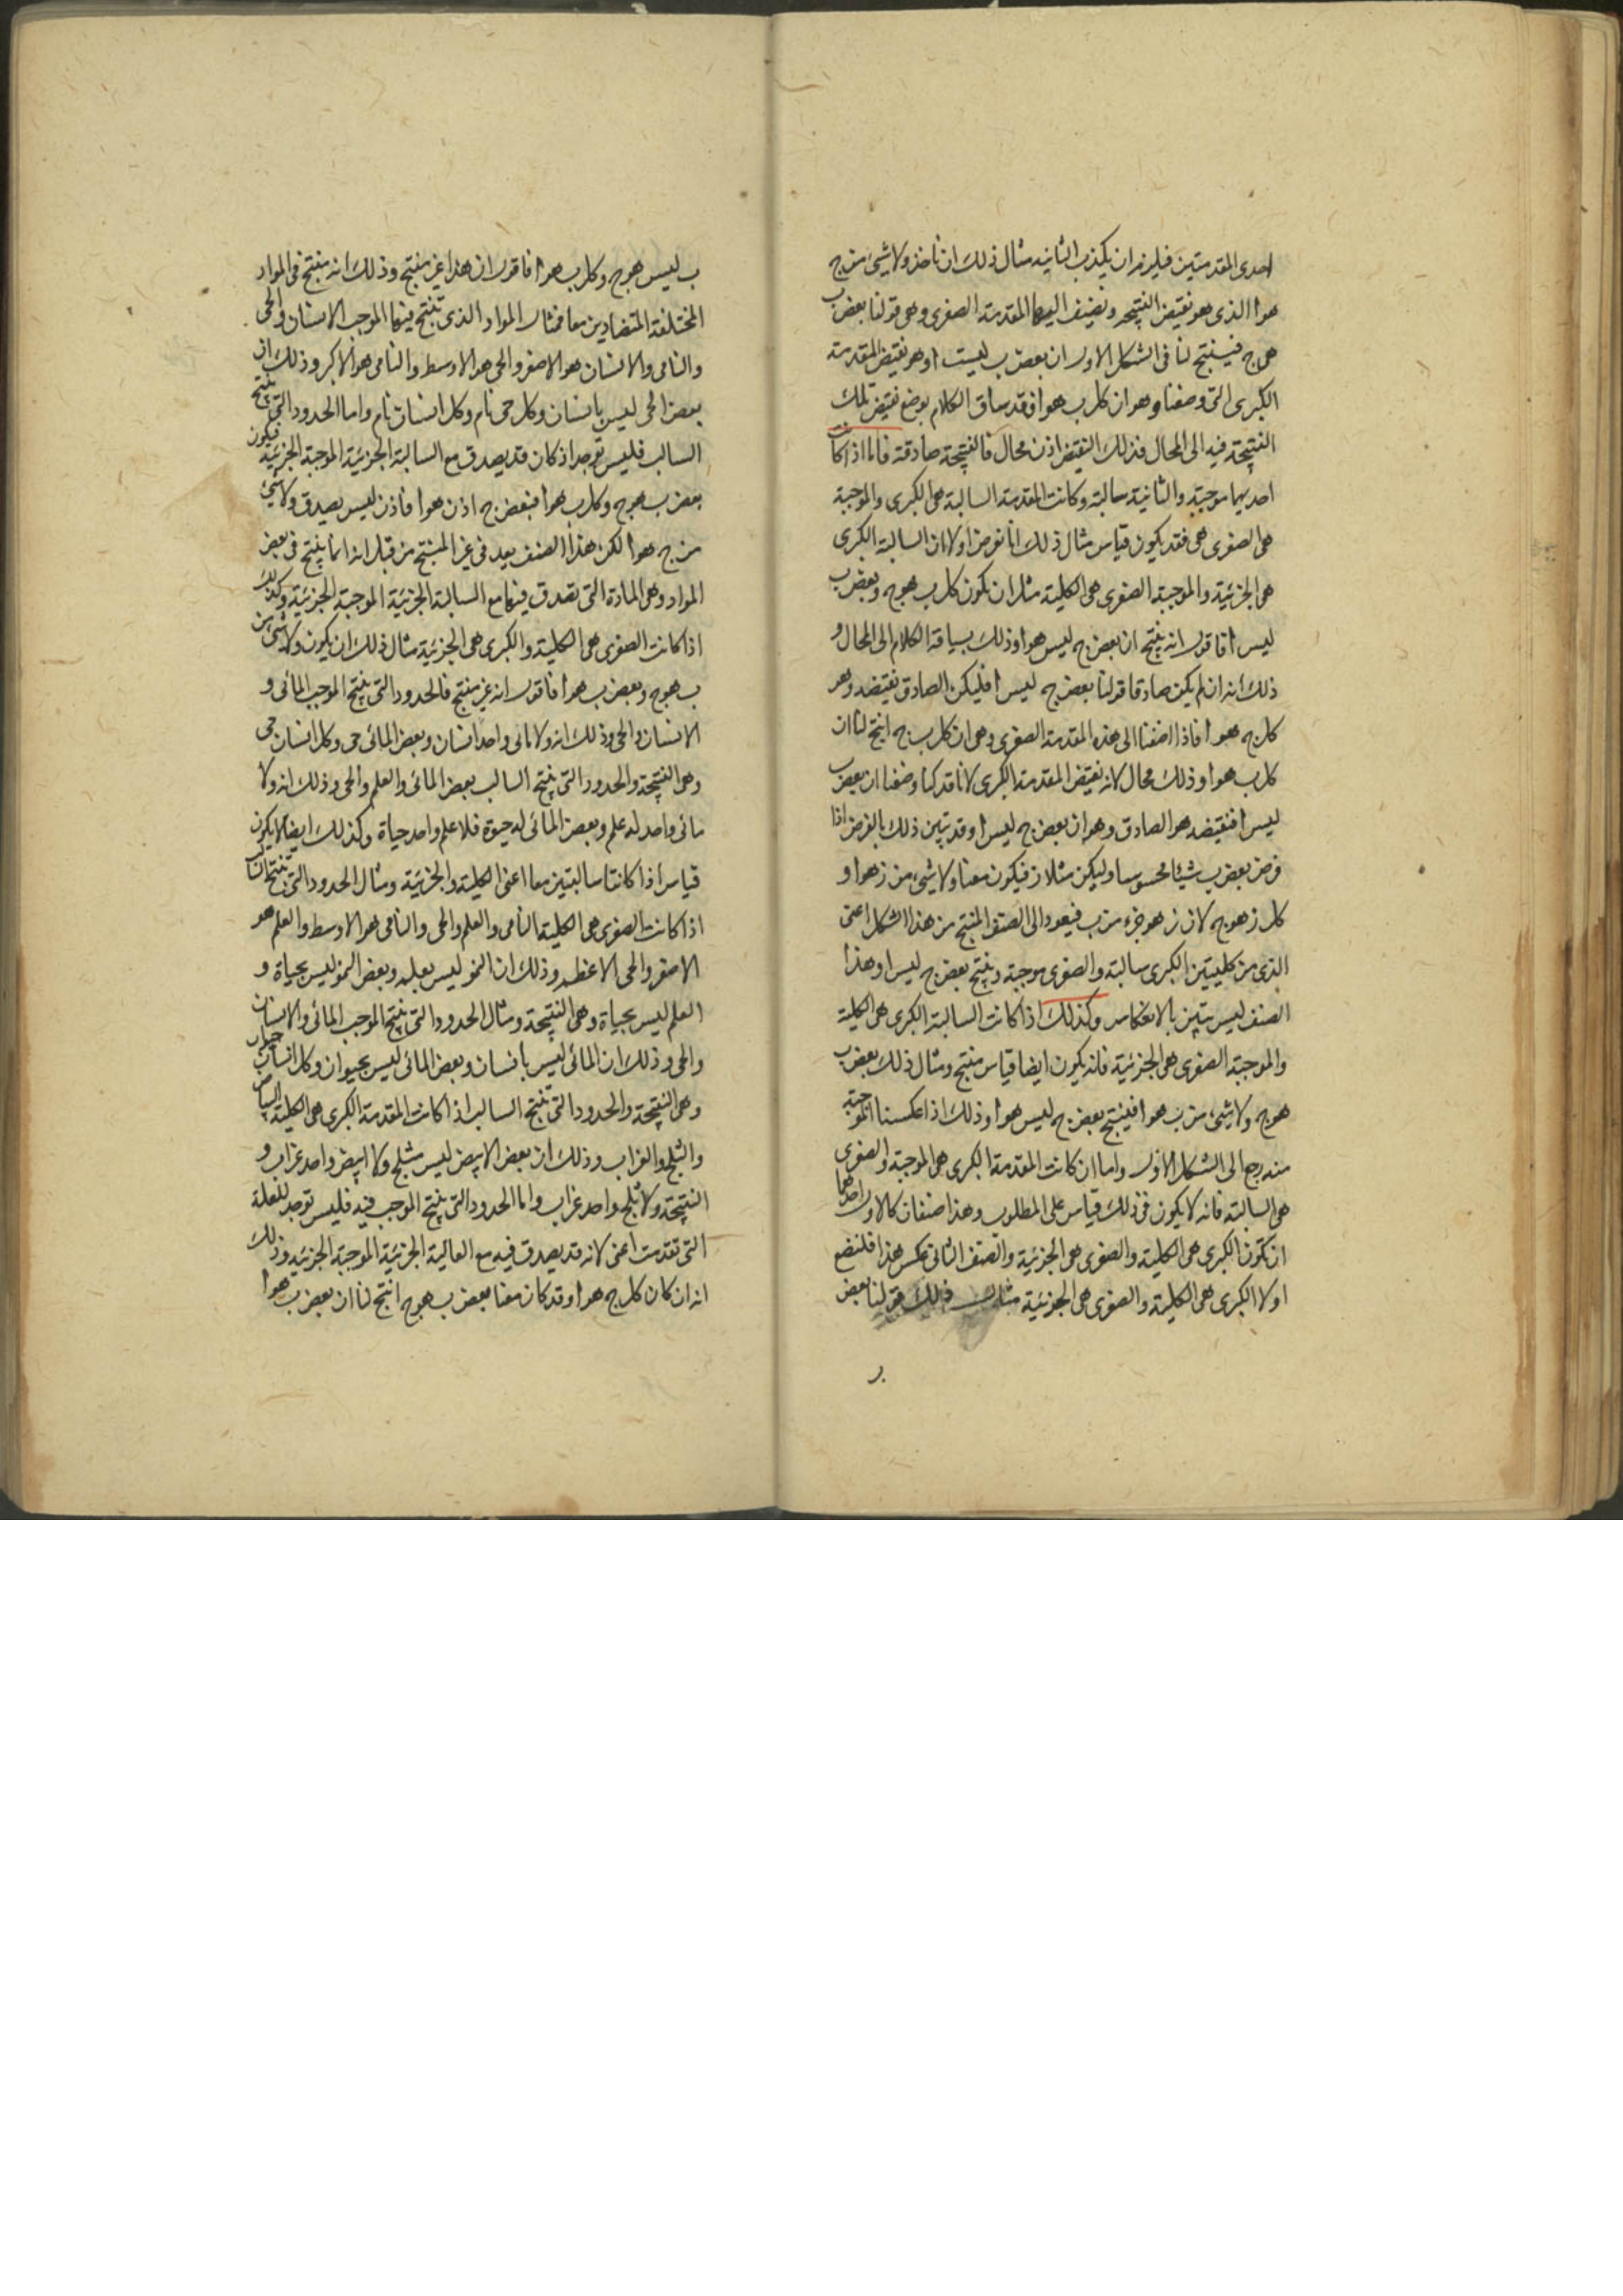 احدى المقدمتين فيلزم ان يكذب الثانيه مثال ذلك ان ناخذ ولا شئ من ج
هو ا الذى هو نقيض النتيجه ونضيف اليها المقدمة الصغرى وهى قولنا بعض ب
هى ج فينتج لنا فى الشكل الاول ان بعض ب ليست ا وهو نقيض المقدمة
الكبرى التى وضعنا وهو ان كل ب هو ا فقد ساق الكلام بوضع نقيض تلك
النتيجة فيه الى المحال فذلك النقيض اذن محال فالنتيجة صادقة فاما اذا كانت
احديهما موجبة والثانية سالبة وكانت المقدمة السالبة هى الكبرى والموجبة
هى الصغرى هى فقد يكون قياس مثال ذلك انا نفرض اولا ان السالبة الكبرى
هى الجزئية والموجبة الصغرى هى الكلية مثل ان تكون كل ب هو ج وبعض ب
ليس ا فاقول انه ينتج ان بعض ج ليس هو ا وذلك بسياقة الكلام الى المحال و
ذلك انه ان لم يكن صادقا قولنا بعض ج ليس ا فليكن الصادق نقيضه وهو
كل ج هو ا فاذا اضفنا الى هذه المقدمة الصغرى وهى ان كل ب ج انتج لنا ان
كل ب هو ا وذلك محال لانه نقيض المقدمة الكبرى لانا قد كنا وضعنا ان بعض ب
ليس ا فنقيضه هو الصادق وهو ان بعض ج ليس ا وقد يتبين ذلك بالفرض اذا
فرض بعض ب شيئا محسوسا وليكن مثلا ز فيكون معنا ولا شئ من ز هو ا و
كل ز هو ج لان ز هو جزء من ب فيعود الى الصنف المنتج من هذا الشكل اعنى
الذى من كليتين الكبرى سالبة والصغرى موجبة وينتج بعض ج ليس ا وهذا
الصنف ليس يتبين بالانعكاس وكذلك اذا كانت السالبة الكبرى هى الكلية
والموجبة الصغرى هى الجزئية فانه يكون ايضا قياس منتج ومثال ذلك بعض ب
هو ج ولا شئ من ب هو ا فينتج بعض ج ليس هو ا وذلك اذا عكسنا الموجبة
منه رجع الى الشكل الاول واما ان كانت المقدمة الكبرى هى الموجبة والصغرى
هى السالبة فانه لا يكون فى ذلك قياس على المطلوب وهذا صنفان كالاول احدهما
ان تكون الكبرى هى الكلية والصغرى هى الجزئية والصنف الثانى عكس هذا فلنضع
اولا الكبرى هى الكلية والصغرى هى الجزئية مثال ذلك قولنا بعض
ب ليس هو ج وكل ب هو ا فاقول ان هذا غير منتج وذلك انه منتج فى المواد
المختلفة المتضادين معا فمثال المواد الذى تنتج فيها الموجب الانسان والحى
والنامى والانسان هو الاصغر والحى هو الاوسط والنامى هو الاكبر وذلك ان
بعض الحى ليس بانسان وكل حى نام وكل انسان نام واما الحدود التى ينتج
السالب فليس توجد اذ كان قد يصدق مع السالبة الجزئية الموجبة الجزئية فيكون
بعض ب هو ج وكل ب هو ا فبعض ج اذن هو ا فاذن ليس يصدق ولا شئ
من ج هو ا لكن هذا الصنف يعد فى غير المنتج من قبل انه انما ينتج فى بعض
المواد وهى المادة التى تصدق فيها مع السالبة الجزئية الموجبة الجزئية وكذلك
اذا كانت الصغرى هى الكلية والكبرى هى الجزئية مثال ذلك ان يكون ولا شئ من
ب هو ج وبعض ب هو ا فاقول انه غير منتج فالحدود التى ينتج الموجب المائى و
الانسان والحى وذلك انه ولا مائى واحد انسان وبعض المائى حى وكل انسان حى
وهى النتيجة والحدود التى ينتج السالب بعض المائى والعلم والحى وذلك انه ولا
مائى واحد له علم وبعض المائى له حيوة فلا علم واحد حياة وكذلك ايضا لا يكون
قياس اذا كانتا سالبتين معا اعنى الكلية والجزئية ومثال الحدود التى تنتج السالب
اذا كانت الصغرى هى الكلية النامى والعلم والحى والنامى هو الاوسط والعلم هو
الاصغر والحى الاعظم وذلك ان النمو ليس بعلم وبعض النمو ليس بحياة و
العلم ليس بحياة وهى النتيجة ومثال الحدود التى ينتج الموجب المائى والانسان
والحى وذلك ان المائى ليس بانسان وبعض المائى ليس بحيوان وكل انسان حيوان
وهى النتيجة والحدود التى تنتج السالب اذا كانت المقدمة الكبرى هى الكلية البياض
والثلج والغراب وذلك ان بعض الابيض ليس بثلج ولا ابيض واحد غراب و
النتيجة ولا ثلج واحد غراب واما الحدود التى ينتج الموجب فيه فليس توجد للعلة
التى تقدمت اعنى لانه قد يصدق فيه مع السالبة الجزئية الموجبة الجزئية وذلك
انه ان كان كل ج هو ا وقد كان معنا بعض ب هو ج انتج لنا ان بعض ب هو ا